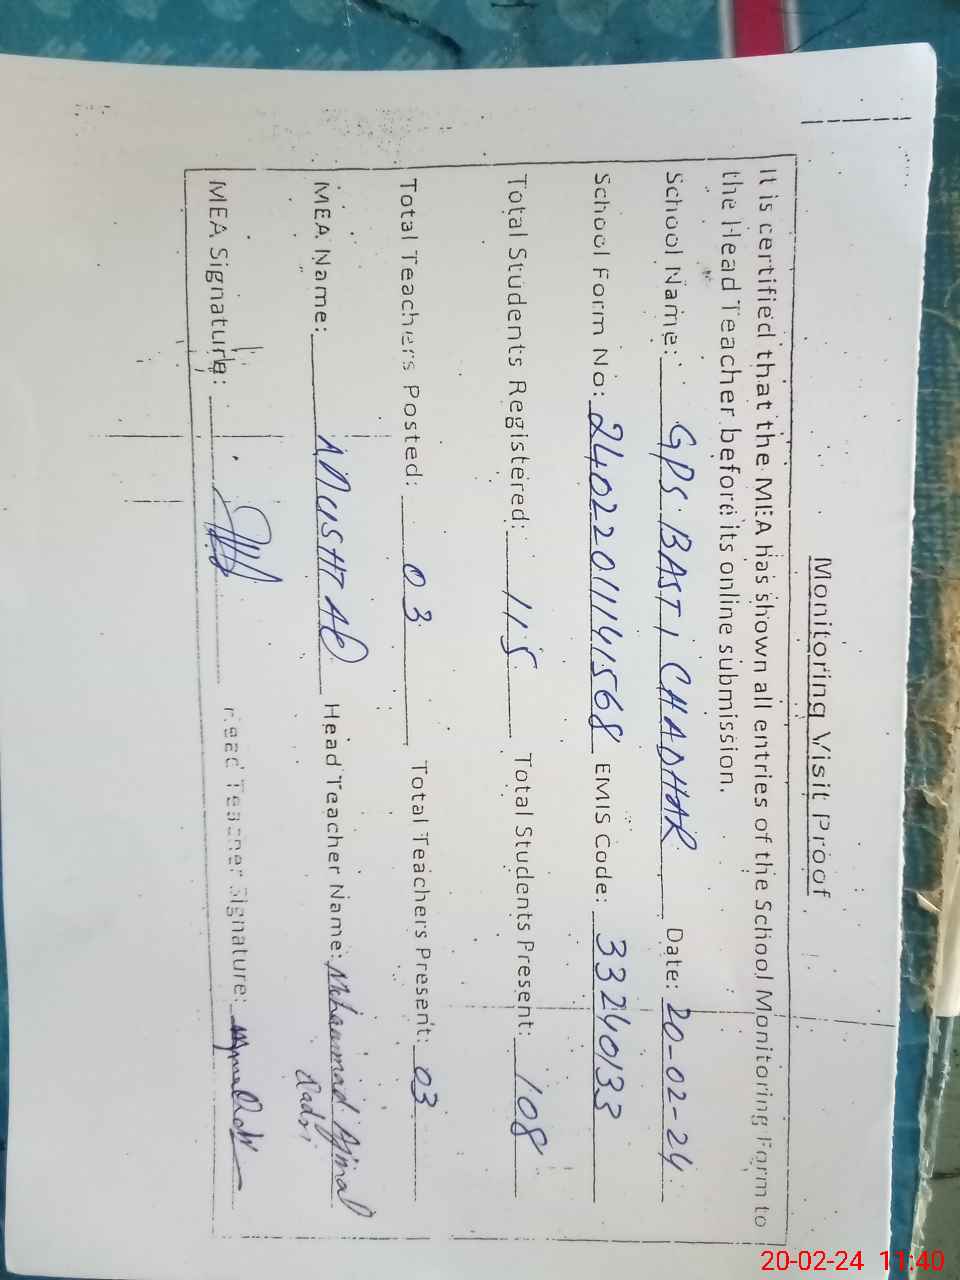 Monitoring Visit Proof
It is certified that the MEA has shown all entries of the School Monitoring Form to
the Head Teacher before its online submission.
School Name: GPS BASTI CHADHAR Date: 20-02-24
School Form No: 24022011141568 EMIS Code: 33240133
Total Students Registered: 115 Total Students Present: 108
Total Teachers Posted: 03 Total Teachers Present: 03
MEA Name: MUSHTAQ Head Teacher Name: Mohammad Ajmal
Qadri
MEA Signature: Head Teacher Signature:
20-02-24 11:40